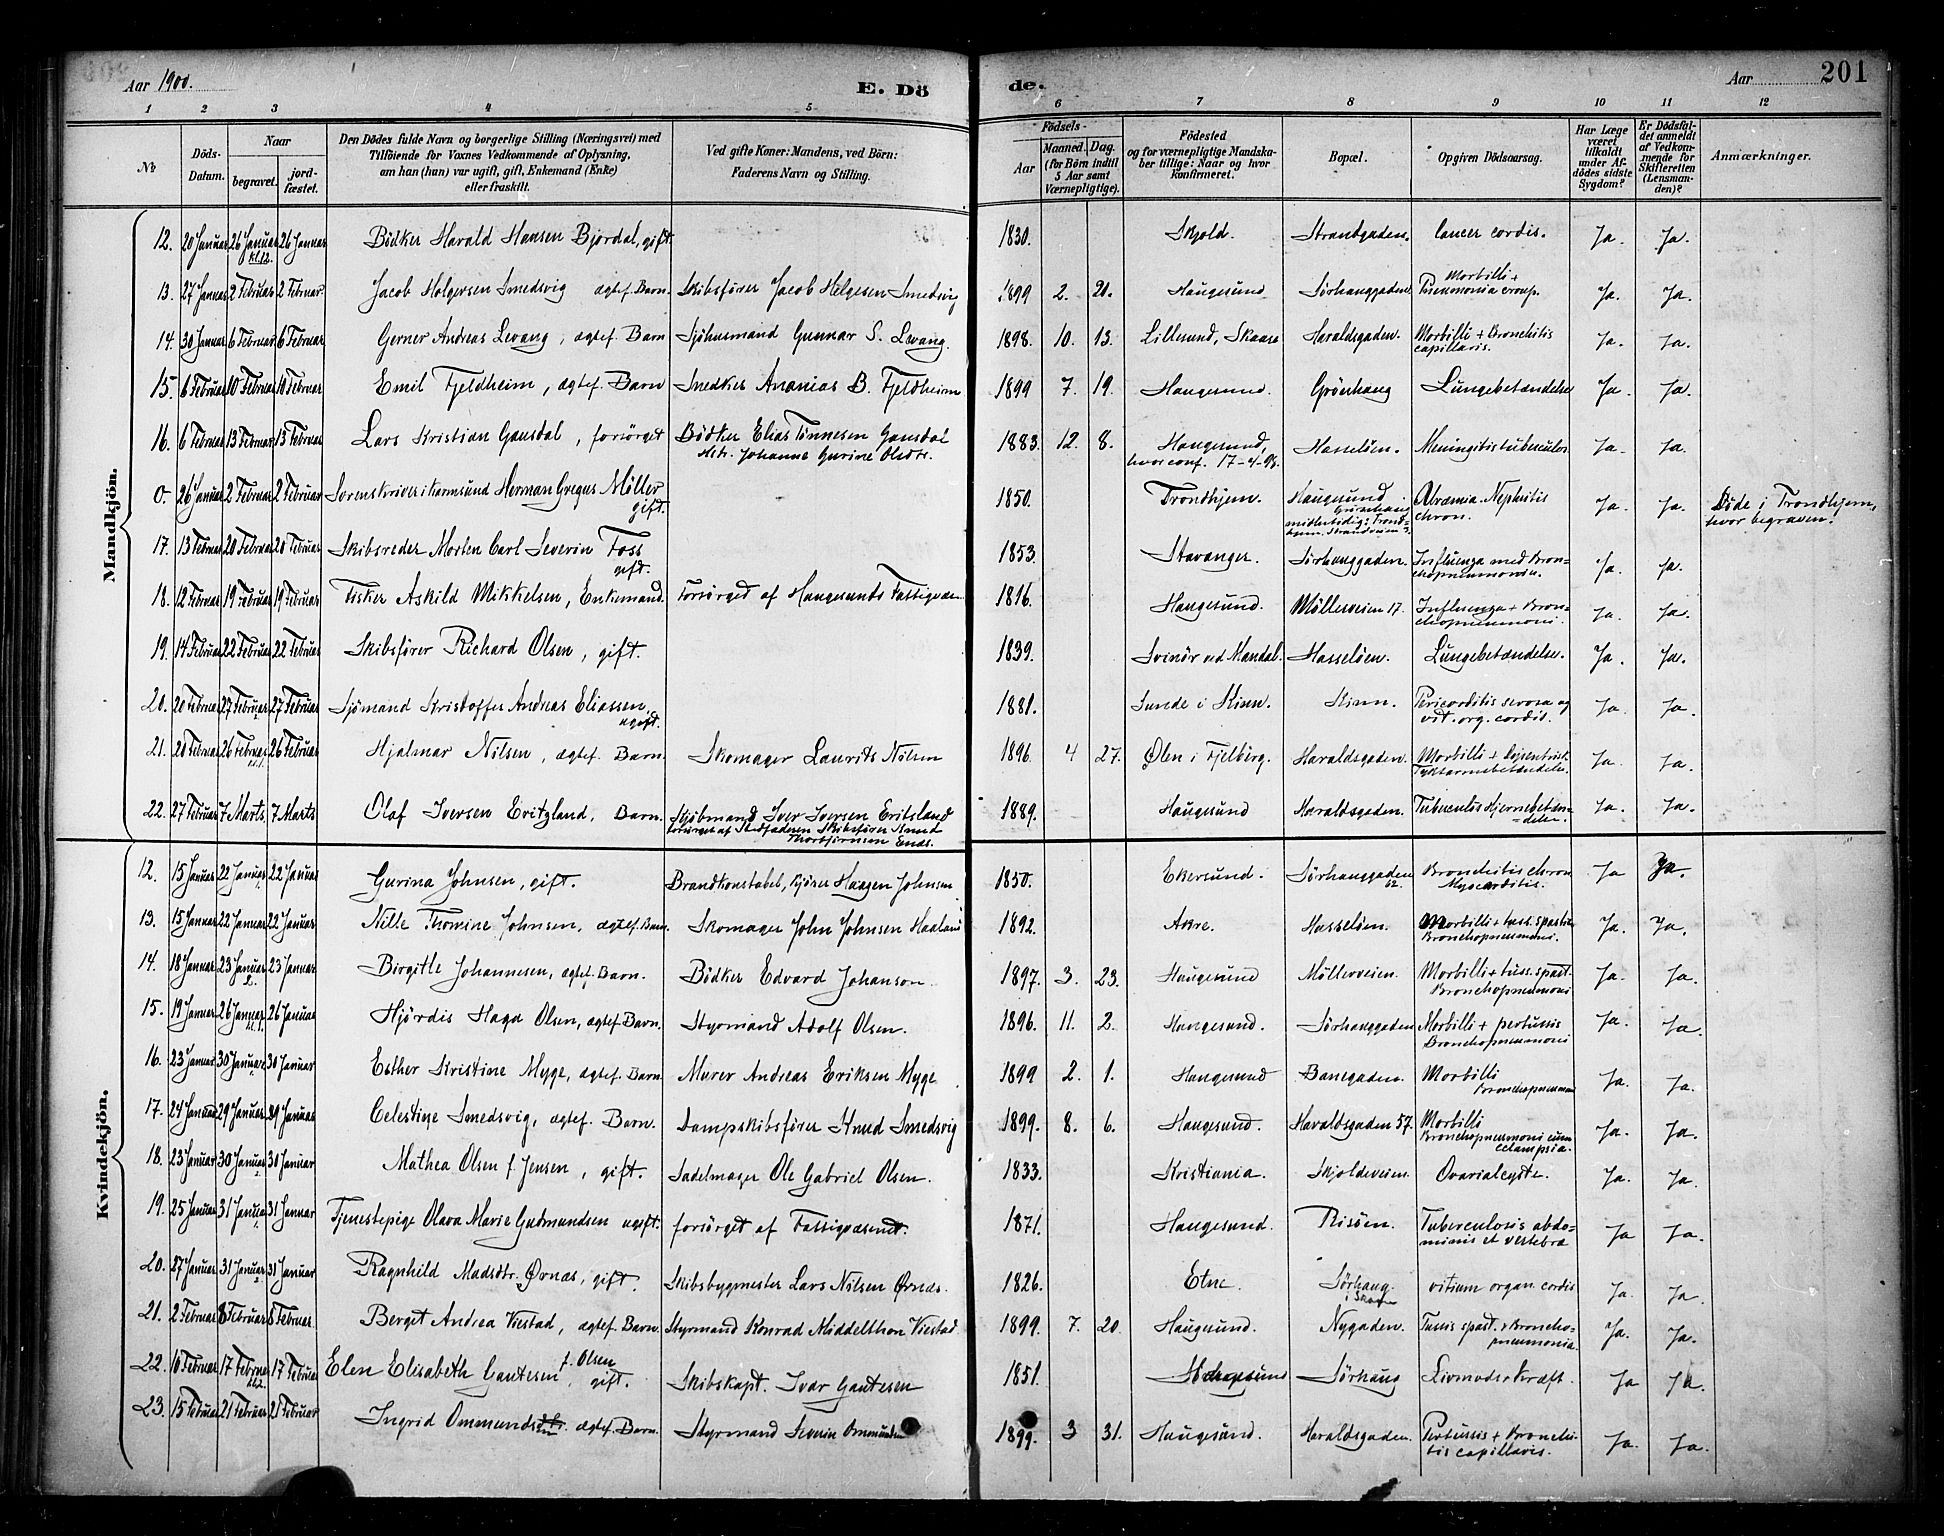 Aar 1900. E. Dö de. Aar 201
1 2 3 4 5 6 7 8 9 10 11 12
№ Döds-Datum. Naar begravet. jordfæstet. Den Dödes fulde Navn og borgerlige Stilling (Næringsvei) med Tilföiende for Voxnes Vedkommende af Oplysning, om han (hun) var ugift, gift, Enkemand (Enke) eller fraskilt. Ved gifte Koner: Mandens, ved Börn: Faderens Navn og Stilling. Födsels- Aar Maaned. Dag. (for Börn indtil 5 Aar samt Værnepligtige). Födested og for værnepligtige Mandskaber tillige: Naar og hvor konfirmeret. Bopæl. Opgiven Dödsaarsag. Har Læge været tilkaldt under Afdödes sidste Sygdom? Er Dödsfaldet anmeldt af Vedkommende for Skifteretten (Lensmanden)? Anmærkninger.
Mandkjön.
12. 20 Januar 26 Januar kl. 12. 26 Januar Bödker Harald Hansen Bjordal, gift. 1830. Skjold. Strandgaden. Cancer cordis. Ja. Ja.
13. 27 Januar 2 Februar 2 Februar Jacob Holgersen Smedsvig ægtef. Barn. Skibsförer Jacob Helgesen Smedsvig 1899 2. 20. Haugesund Sörhauggaden Morbilli + Pneumonia croup. Ja. Ja.
14. 30 Januar 6 Februar 6 Februar Gerner Andreas Levang, ægtef. Barn Sjöhusmand Gunnar S. Levang. 1898. 10. 13. Lillesund, Skaare Haraldsgaden. Morbilli + Bronchitis capillaris. Ja. Ja.
15. 6 Februar 10 Februar 10 Februar Emil Fjeldheim, ægtef. Barn Snedker Ananias B. Fjeldheim 1899 7. 19. Haugesund. Grönhaug Lungebetændelse Ja. Ja.
16. 6 Februar 13 Februar 13 Februar Lars Kristian Gausdal, forsörget Bödker Elias Tönnesen Gausdal Hstr. Johanne Gurine Olsdtr. 1883. 12. 8. Haugesund, hvor conf. 17-4-98. Hasselöen. Meningitis tuberculos. Ja. Ja.
0. 26 Januar 2 Februar 2 Februar Sorenskriver i Karmsund Herman Gregus Möller gift. 1850. Trondhjem. Haugesund Grönhaug midlertidig: Trondhjem Uræmia. Nephritis chron. Ja. Ja. Döde i Trondhjem, hvor begraven.
17. 13 Februar 20 Februar 20 Februar Skibsreder Morten Carl Severin Foss gift. 1853 Stavanger. Sörhauggaden. Influenza med Bronchopneumonia. Ja. Ja.
18. 12 Februar 19 Februar 19 Februar Fisker Askild Mikkelsen, Enkemand. Forsörget af Haugesunds Fattigvæsen 1816. Haugesund. Möllerveien 17. Influenza + Bronchopneumoni. Ja. Ja.
19. 14 Februar 22 Februar 22 Februar Skibsförer Richard Olsen, gift. 1839. Svinör ved Mandal. Hasselöen. Lungebetændelse. Ja. Ja.
20. 20 Februar 27 Februar 27 Februar Sjömand Kristoffer Andreas Eliassen, ugift. 1881. Sunde i Kinn. Kinn. Pericarditis serosa og vit. org. cordis. Ja. Ja.
21. 20 Februar 26 Februar kl. 1. 26 Februar Hjalmar Nilsen, ægtef. Barn. Skomager Laurits Nilsen 1896. 4 27. Ølen i Fjelberg. Haraldsgaden. Morbilli + Tyktarmebetændelse. Ja. Ja.
22. 27 Februar 7 Marts. 7 Marts Olaf Iversen Eritzland, Barn. Sjöbmand Iver Iversen Eritsland forsörget af Stedfaderen Skibsförer Knud Thorbjörnsen Enes. 1889. Haugesund Haraldsgaden. Tuberculös Hjernebetændelse. Ja. Ja.
Kvindekjön.
12. 15 Januar 22 Januar 22 Januar Gurina Johnsen, gift. Brandkonstabel, Kjörer Haagen Johnsen 1850. Ekersund. Sörhauggaden 62. Bronchitis chron Myocarditis. Ja Ja.
13. 15 Januar 22 Januar 22 Januar Nille Thomine Johnsen, ægtef. Barn. Skomager John Johnsen Haaland 1892. Akre. Hasselöen. Morbilli + tuss. spastica Bronchopneumoni. Ja. Ja.
14. 18 Januar 23 Januar 2. 23 Januar Birgitte Johannesen, ægtef. Barn. Bödker Edvard Johanson. 1897. 3. 23. Haugesund Möllerveien. Morbilli + tuss. spast. Bronchopneumoni Ja. Ja.
15. 19 Januar 26 Januar kl. 1. 26 Januar Hjördis Haga Olsen, ægtef. Barn. Styrmand Adolf Olsen. 1896. 11. 2. Haugesund. Sörhauggaden Morbilli + pertussis Bronchopneumoni Ja. Ja.
16. 23 Januar 30 Januar 30 Januar Esther Kristine Myge, ægtef. Barn Murer Andreas Eriksen Myge 1899 2. 1. Haugesund Banegaden. Morbilli Bronchopneumoni Ja. Ja.
17. 24 Januar 29 Januar 29 Januar Celestine Smedsvig, ægtef. Barn. Dampskibsförer Knud Smedsvig 1899. 8. 6. Haugesund. Haraldsgaden 57. Morbilli Bronchopneumoni cum eclampsia. Ja. Ja.
18. 23 Januar 30 Januar 30 Januar Mathea Olsen f. Jensen, gift. Sadelmager Ole Gabriel Olsen. 1833. Kristiania. Skjoldeveien. Ovarialcyste. Ja. Ja.
19. 25 Januar 31 Januar 31 Januar Tjenestepige Olava Marie Gudmundsen ugift. forsörget af Fattigvæsenet. 1871. Haugesund. Risöen. Tuberculosis abdominis et vertebra Ja Ja.
20. 27 Januar 31 Januar 31 Januar Ragnhild Madsdtr. Ørnæs, gift. Skibsbygmester Lars Nilsen Ørnæs. 1826. Etne. Sörhaug. i Skaare vitium organ. cordis Ja. Ja.
21. 2 Februar 8 Februar 8 Februar Berget Andrea Viestad, ægtef. Barn. Styrmand Konrad Middelthon Viestad 1899. 7. 20. Haugesund. Nygaden. Tussis spast. + Bronchopneumonia. Ja. Ja.
22. 10 Februar 17 Februar kl. 2. 17 Februar Elen Elisabeth Gautesen f. Olsen, gift. Skibskapt. Ivar Gautesen 1851. Haugesund Sörhaug Livmoderkræft. Ja Ja.
23. 15 Februar 21 Februar 21 Februar Ingrid Ommundsen ægtef. Barn. Styrmand Severin Ommundsen 1899. 3 31. Haugesund. Haraldsgaden. Pertussis + Bronchitis capillaris. Ja. Ja.